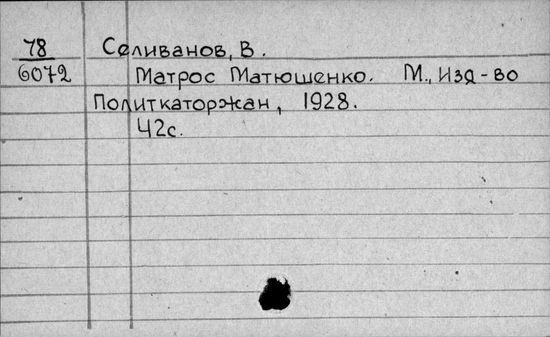 78 Селиванов, В.
6072 Матрос Матюшенко. М., Изд-во
Политкаторжан, 1928.
42с.